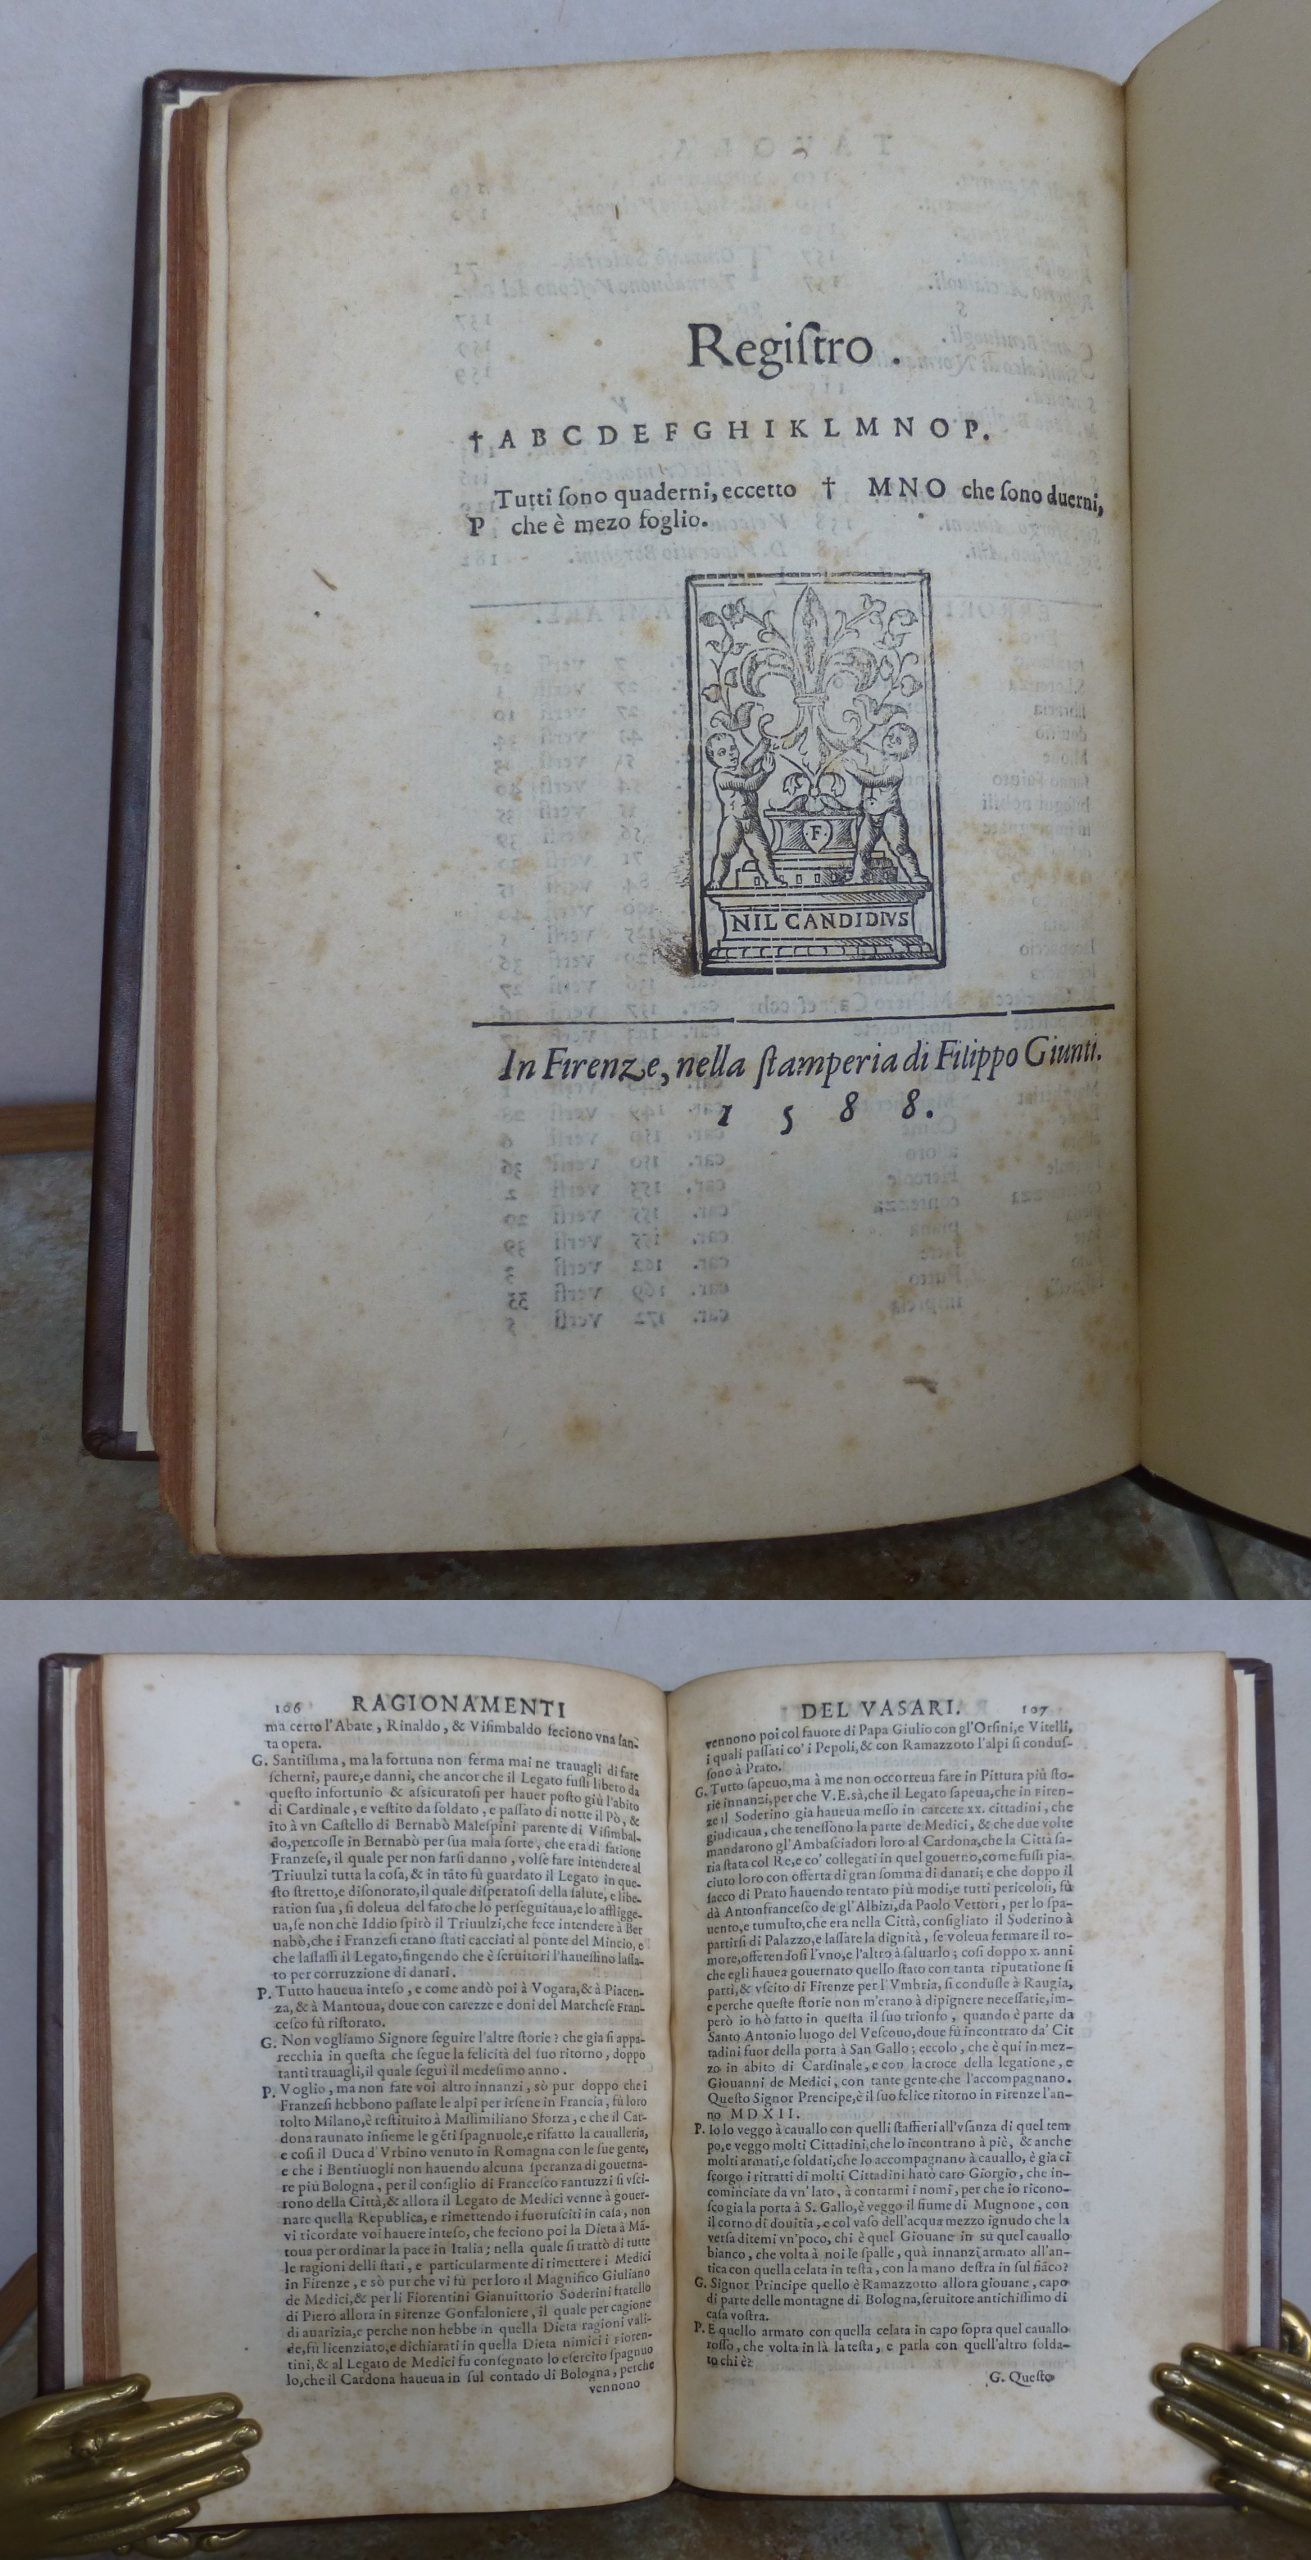 Regiſtro .
† A B C D E F G H I K L M N O P.
Tutti ſono quaderni, eccetto † M N O che ſono duerni,
P che è mezo foglio.
·F·
NIL CANDIDIVS
In Firenze, nella ſtamperia di Filippo Giunti.
1 5 8 8.
106 RAGIONAMENTI
ma certo l'Abate, Rinaldo, & Viſimbaldo feciono vna ſan-
ta opera.
G. Santiſſima, ma la fortuna non ferma mai ne trauagli di fare
ſcherni, paure,e danni, che ancor che il Legato fuſſi libero da
queſto infortunio & aſſicuratoſi per hauer poſto giù l'abito
di Cardinale, e veſtito da ſoldato, e paſſato di notte il Pò, &
ito à vn Caſtello di Bernabò Maleſpini parente di Viſimbal-
do,percoſſe in Bernabò per ſua mala ſorte, che era di fatione
Franzeſe, il quale per non farſi danno, volſe fare intendere al
Triuulzi tutta la coſa, & in tãto fù guardato il Legato in que-
ſto ſtretto,e diſonorato,il quale diſperatoſi della ſalute, e libe-
ration ſua, ſi doleua del fato che lo perſeguitaua,e lo affligge-
ua,ſe non che Iddio ſpirò il Triuulzi,che fece intendere à Ber
nabò,che i Franzeſi erano ſtati cacciati al ponte del Mincio, e
che laſſaſſi il Legato,fingendo che è ſeruitori l'haueſſino laſſa-
to per corruzzione di danari.
P. Tutto haueua inteſo, e come andò poi à Vogara,& à Piacen-
za, & à Mantoua, doue con carezze e doni del Marcheſe Fran-
ceſco fù riſtorato.
G. Non vogliamo Signore ſeguire l'altre ſtorie? che gia ſi appa-
recchia in queſta che ſegue la felicità del ſuo ritorno, doppo
tanti trauagli,il quale ſeguì il medeſimo anno.
P. Voglio, ma non fate voi altro innanzi, sò pur doppo che i
Franzeſi hebbono paſſate le alpi per irſene in Francia, fù loro
tolto Milano,è reſtituito à Maſſimiliano Sforza, e che il Car-
dona raunato inſieme le gẽti ſpagnuole,e rifatto la caualleria,
e coſi il Duca d'Vrbino venuto in Romagna con le ſue gente,
e che i Bentiuogli non hauendo alcuna ſperanza di gouerna-
re più Bologna, per il conſiglio di Franceſco Fantuzzi ſi vſci-
rono della Città,& allora il Legato de Medici venne à gouer-
nare quella Republica, e rimettendo i fuoruſciti in caſa, non
vi ricordate voi hauere inteſo, che feciono poi la Dieta à Mã-
toua per ordinar la pace in Italia; nella quale ſi trattò di tutte
le ragioni delli ſtati, e particularmente di rimettere i Medici
in Firenze, e sò pur che vi fù per loro il Magnifico Giuliano
de Medici,& per li Fiorentini Gianuittorio Soderini fratello
di Piero allora in Firenze Gonfaloniere, il quale per cagione
di auarizia,e perche non hebbe in quella Dieta ragioni vali-
de,fù licenziato,e dichiarati in quella Dieta nimici i Fioren-
tini,& al Legato de Medici fu conſegnato lo eſercito ſpagnuo
lo,che il Cardona haueua in ſul contado di Bologna, perche
vennono
DEL VASARI. 107
vennono poi col fauore di Papa Giulio con gl'Orſini,e Vitelli,
i quali paſſati co' i Pepoli,& con Ramazzoto l'alpi ſi conduſ-
ſono à Prato.
G. Tutto ſapeuo,ma à me non occorreua fare in Pittura più ſto-
rie innanzi,per che V.E.sà,che il Legato ſapeua,che in Firen-
ze il Soderino gia haueua meſſo in carcere xx. cittadini, che
giudicaua, che teneſſono la parte de Medici, & che due volte
mandarono gl'Ambaſciadori loro al Cardona,che la Città ſa-
ria ſtata col Re,e co' collegati in quel gouerno,come fuſſi pia-
ciuto loro con offerta di gran ſomma di danari; e che doppo il
ſacco di Prato hauendo tentato più modi,e tutti pericoloſi, fù
dà Antonfranceſco de gl'Albizi,da Paolo Vettori, per lo ſpa-
uento,e tumulto,che era nella Città, conſigliato il Soderino à
partirſi di Palazzo,e laſſare la dignità, ſe voleua fermare il ro-
more,offerendoſi l'vno,e l'altro à ſaluarlo; coſi doppo x. anni
che egli hauea gouernato quello ſtato con tanta riputatione ſi
partì,& vſcito di Firenze per l'Vmbria, ſi conduſſe à Raugia,
e perche queſte ſtorie non m'erano à dipignere neceſſarie,im-
però io hò fatto in queſta il ſuo trionfo, quando è parte da
Santo Antonio luogo del Veſcouo,doue fù incontrato da' Cit
tadini fuor della porta à San Gallo; eccolo, che è qui in mez-
zo in abito di Cardinale, e con la croce della legatione, e
Giouanni de Medici, con tante gente che l'accompagnano.
Queſto Signor Prencipe,è il ſuo felice ritorno in Firenze l'an-
no MDXII.
P. Io lo veggo à cauallo con quelli ſtaffieri all'vſanza di quel tem
po,e veggo molti Cittadini,che lo incontrano à piè, & anche
molti armati,e ſoldati,che lo accompagnano à cauallo, è gia ci
ſcorgo i ritratti di molti Cittadini harò caro Giorgio, che in-
cominciate da vn' lato, à contarmi i nomi, per che io ricono-
ſco gia la porta à S. Gallo,è veggo il fiume di Mugnone, con
il corno di douitia, e col vaſo dell'acqua mezzo ignudo che la
verſa ditemi vn'poco, chi è quel Giouane in sù quel cauallo
bianco, che volta à noi le ſpalle, quà innanzi armato all'an-
tica con quella celata in teſta, con la mano deſtra in ſul fiãco?
G. Signor Principe quello è Ramazzotto allora giouane, capo
di parte delle montagne di Bologna,ſeruitore antichiſſimo di
caſa voſtra.
P. E quello armato con quella celata in capo ſopra quel cauallo
roſſo, che volta in là la teſta, e parla con quell'altro ſolda-
to chi è?
G. Queſto